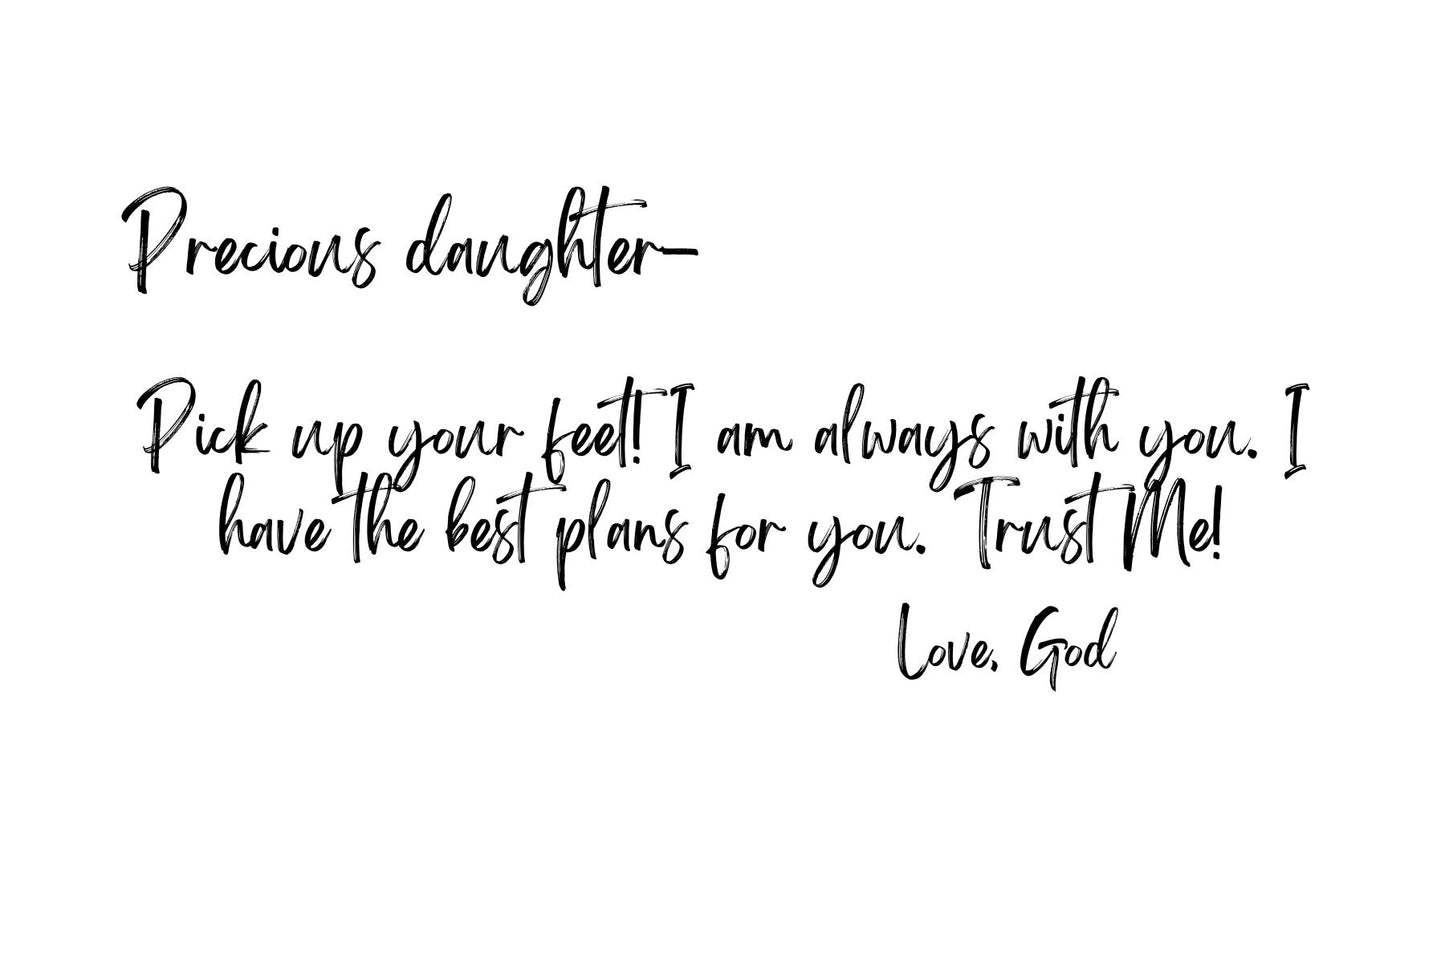 Precious daughter-
Pick up your feet! I am always with you. I
have the best plans for you. Trust Me!
Love, God